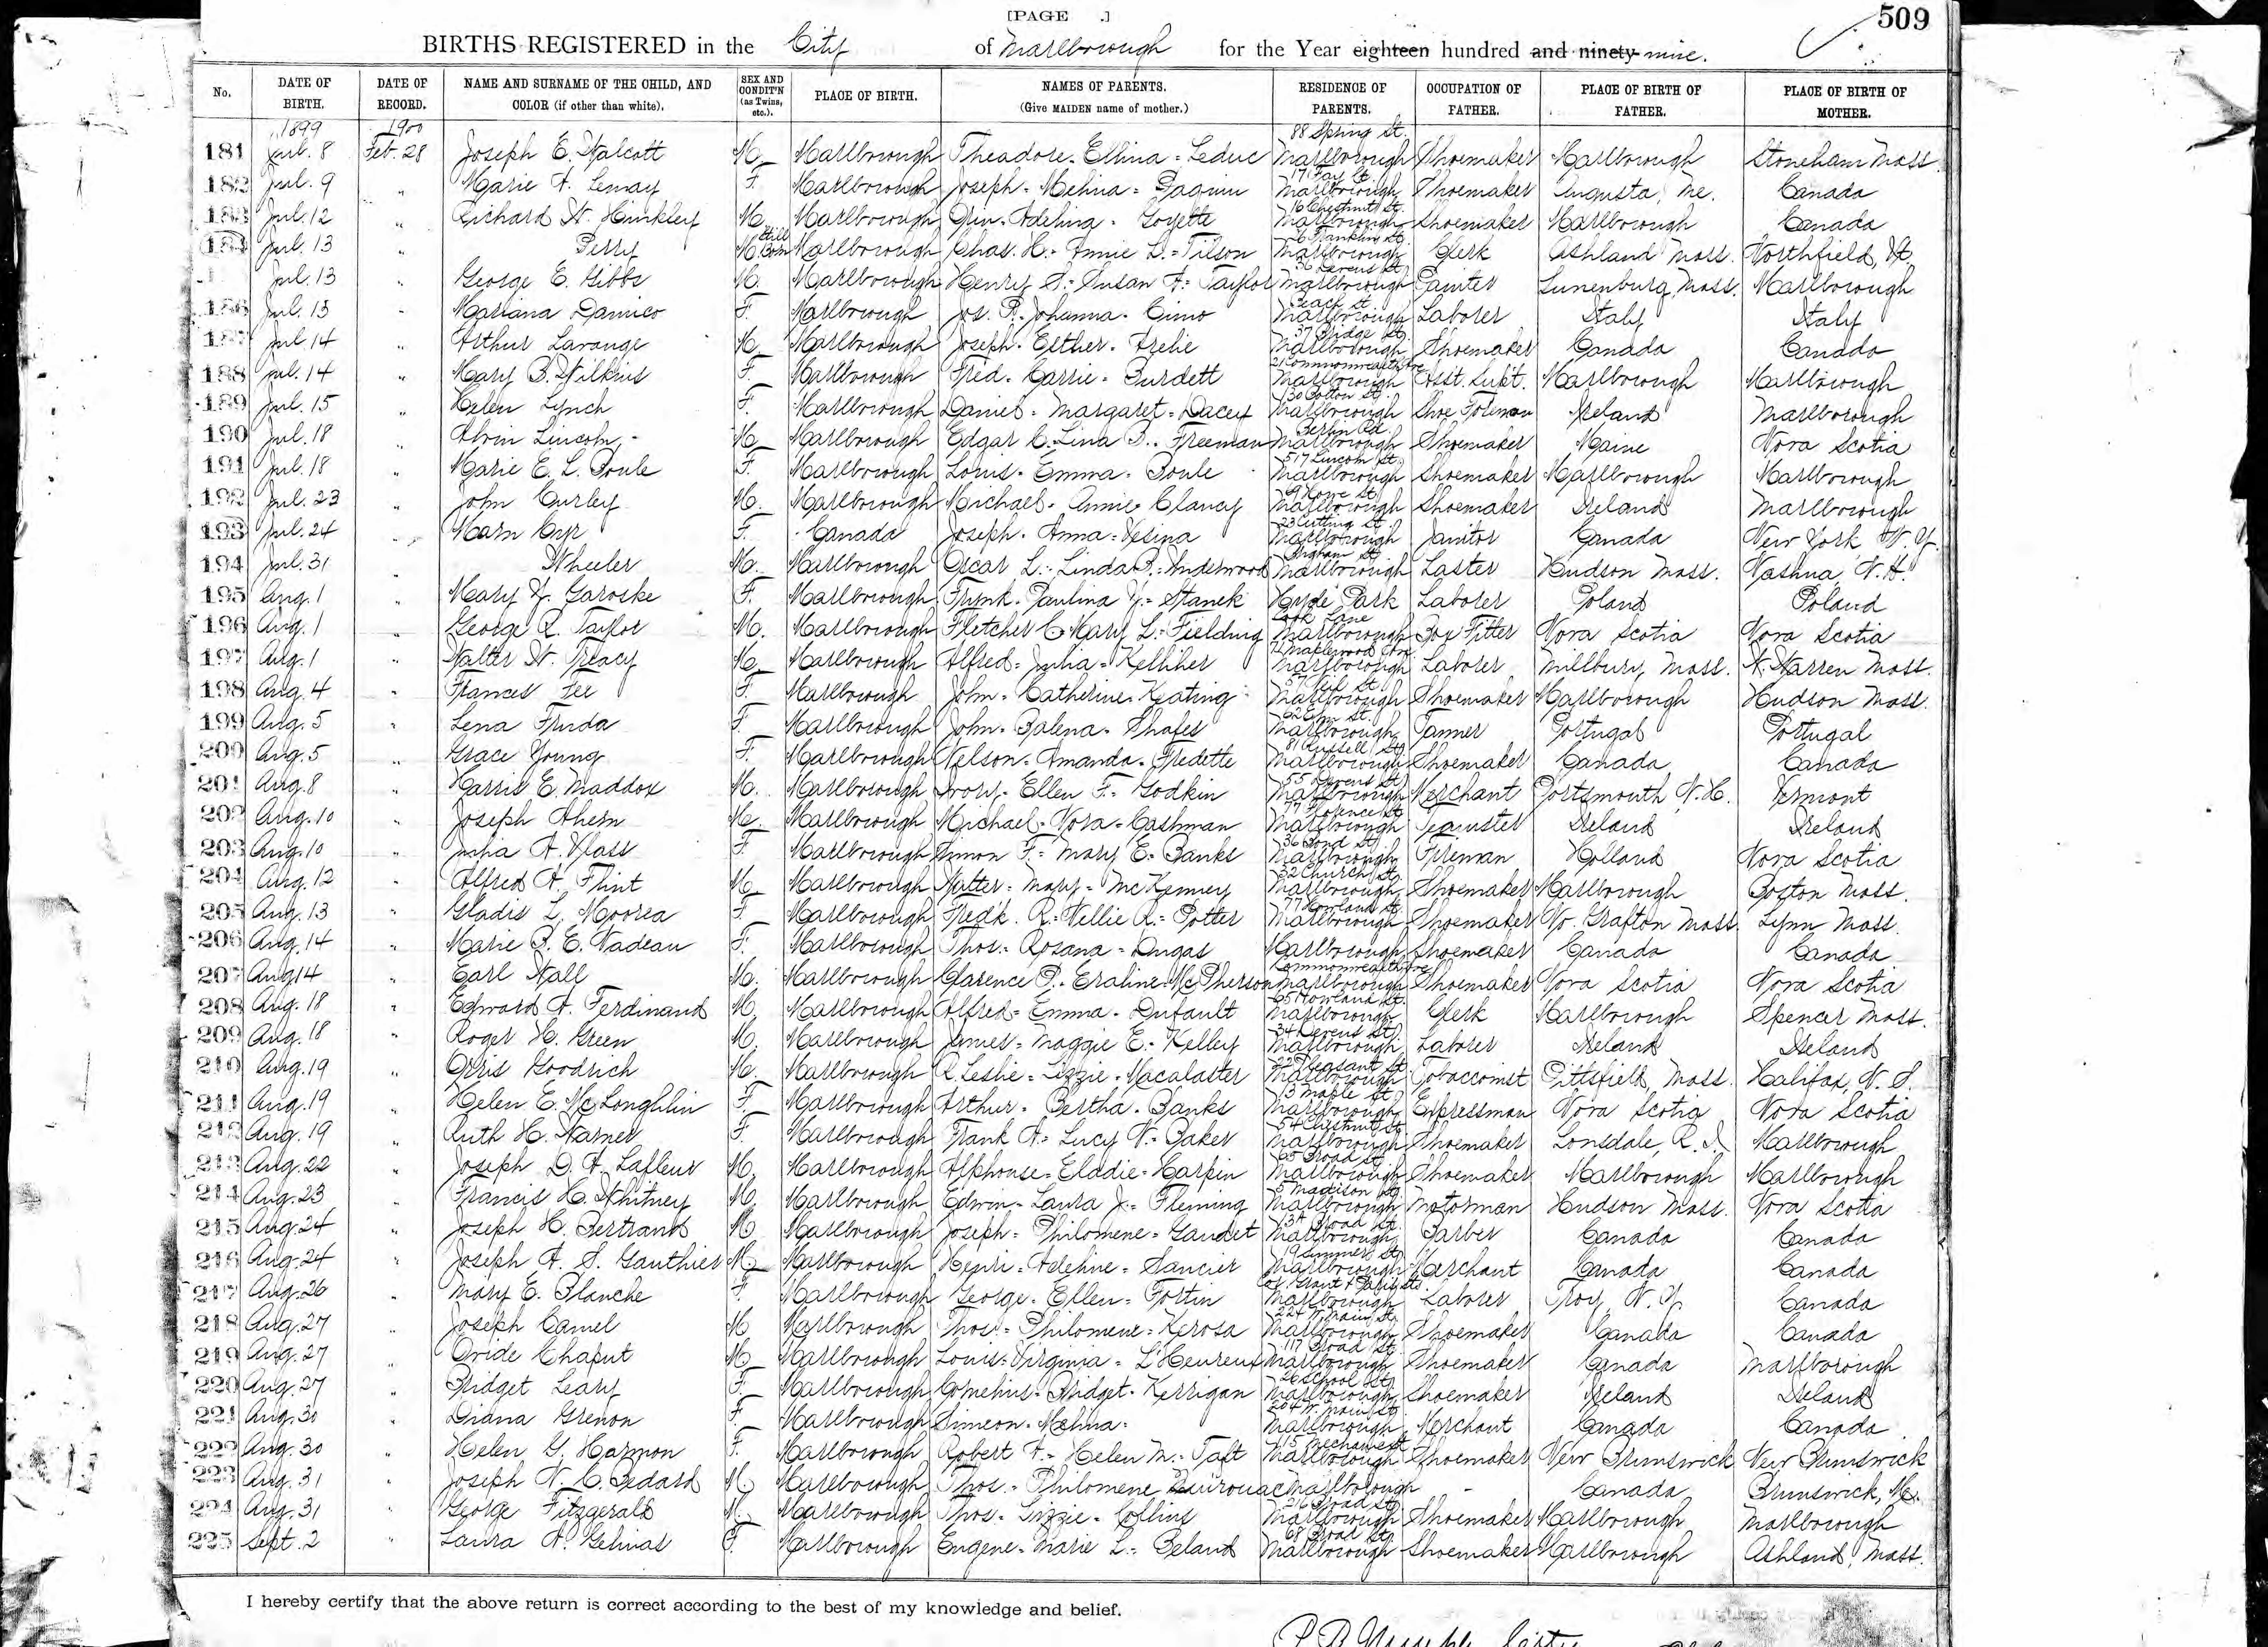 [PAGE .]
509
BIRTHS REGISTERED in the City of Marlborough for the Year eighteen hundred and ninety nine.
No. DATE OF BIRTH. DATE OF RECORD. NAME AND SURNAME OF THE CHILD, AND COLOR (if other than white). SEX AND CONDIT'N (as Twins, etc.). PLACE OF BIRTH. NAMES OF PARENTS. (Give MAIDEN name of mother.) RESIDENCE OF PARENTS. OCCUPATION OF FATHER. PLACE OF BIRTH OF FATHER. PLACE OF BIRTH OF MOTHER.
1899 1900
181 Jul. 8 Feb. 28 Joseph E. Walcott M. Marlborough Theadore - Ellina = Leduc 88 Spring St. Marlborough Shoemaker Marlborough Stoneham Mass.
182 Jul. 9 " Marie A. Lemay F. Marlborough Joseph - Melina = Paquin 17 Fay Ct. Marlborough Shoemaker Augusta, Me. Canada
183 Jul. 12 " Richard W. Hinkley M. Marlborough Adelina - Goyette 16 Chestnut St. Marlborough Shoemaker Marlborough Canada
184 Jul. 13 " Perry M. Still Born Marlborough Chas. H. - Annie L. = Tilson 6 Franklin St. Marlborough Clerk Ashland Mass. Northfield, Vt.
Jul. 13 " George E. Gibbs M. Marlborough Henry S. - Susan A. = Taylor 36 Devens St. Marlborough Painter Lunenburg, Mass. Marlborough
186 Jul. 13 " Mariana Damico F. Marlborough Jos. P. Johanna - Cimo Beach St. Marlborough Laborer Italy Italy
187 Jul. 14 " Arthur Lavange M. Marlborough Joseph - Esther - Frelie 37 Bridge St. Marlborough Shoemaker Canada Canada
188 Jul. 14 " Mary B. Wilkins F. Marlborough Fred - Carrie - Burdett 21 Commonwealth Ave Marlborough Asst. Supt. Marlborough Marlborough
189 Jul. 15 " Helen Lynch F. Marlborough Daniel - Margaret = Dacey 130 Bolton St. Marlborough Shoe Foreman Ireland Marlborough
190 Jul. 18 " Alvin Lincoln M. Marlborough Edgar C. Lina B. - Freeman Berlin Rd. Marlborough Shoemaker Maine Nova Scotia
191 Jul. 18 " Marie E. L. Boule F. Marlborough Louis - Emma - Boule 517 Lincoln St. Marlborough Shoemaker Marlborough Marlborough
192 Jul. 23 " John Curley M. Marlborough Michael - Annie - Clancy 69 Howe St. Marlborough Shoemaker Ireland Marlborough
193 Jul. 24 " Cyr F. Canada Joseph - Anna = Vesina 23 Cutting St. Marlborough Janitor Canada New York N. Y.
194 Jul. 31 " Wheeler M. Marlborough Oscar L. - Linda P. = Underwood Brigham St. Marlborough Laster Hudson Mass. Nashua, N. H.
195 Aug. 1 " Mary J. Garoske F. Marlborough Frank - Paulina Y. = Stanek Hyde Park Laborer Poland Poland
196 Aug. 1 " George R. Taylor M. Marlborough Fletcher C. Mary L. = Fielding Cook Lane Marlborough Box Fitter Nova Scotia Nova Scotia
197 Aug. 1 " Walter W. Treacy M. Marlborough Alfred = Julia = Kelliher 72 Maplewood Ave. Marlborough Laborer Millbury, Mass. W. Warren Mass.
198 Aug. 4 " Frances Fee F. Marlborough John - Catherine - Keating 57 St. Marlborough Shoemaker Marlborough Hudson Mass.
199 Aug. 5 " Lena Fruda F. Marlborough John - Balena - Shafes 62 Elm St. Marlborough Tanner Portugal Portugal
200 Aug. 5 " Grace Young F. Marlborough Nelson - Amanda - Fredette 81 Russell St. Marlborough Shoemaker Canada Canada
201 Aug. 8 " Harris E. Maddox M. Marlborough Ivory - Ellen F. - Godkin 55 Devens St. Marlborough Merchant Portsmouth N. H. Vermont
202 Aug. 10 " Joseph Ahern M. Marlborough Michael - Nora - Cashman 77 Florence St. Marlborough Teamster Ireland Ireland
203 Aug. 10 " Julia A. Vlass F. Marlborough Simon F. = Mary E. - Banks 36 Pond St. Marlborough Fireman Holland Nova Scotia
204 Aug. 12 " Alfred A. Flint M. Marlborough Walter = Mary = McKenney 32 Church St. Marlborough Shoemaker Marlborough Boston Mass.
205 Aug. 13 " Gladis L. Moorea F. Marlborough Fred'k. R. = Nellie R. = Potter 77 Howland St. Marlborough Shoemaker No. Grafton Mass. Lynn Mass.
206 Aug. 14 " Marie R. E. Nadeau F. Marlborough Thos. - Rosana = Dugas Marlborough Shoemaker Canada Canada
207 Aug 14 " Earl Hall M. Marlborough Clarence P. - Eraline - McPherson Commonwealth Ave Marlborough Shoemaker Nova Scotia Nova Scotia
208 Aug. 18 " Edward A. Ferdinand M. Marlborough Alfred = Emma - Dufault 65 Howland St. Marlborough Clerk Marlborough Spencer Mass.
209 Aug. 18 " Roger H. Green M. Marlborough James = Maggie E. - Kelley 34 Devens St. Marlborough Laborer Ireland Ireland
210 Aug. 19 " Orris Goodrich M. Marlborough R. Leslie = Lizzie - Macalaster 22 Pleasant St. Marlborough Tobacconist Pittsfield, Mass. Halifax, N. S.
211 Aug. 19 " Helen E. McLoughlin F. Marlborough Arthur - Bertha - Banks 13 Maple St. Marlborough Expressman Nova Scotia Nova Scotia
212 Aug. 19 " Ruth H. Warner F. Marlborough Frank A. = Lucy N. = Baker 54 Chestnut St. Marlborough Shoemaker Lonsdale, R. I. Marlborough
213 Aug. 22 " Joseph D. A. Lafleur M. Marlborough Alphonse = Elodie = Harpin 65 Broad St. Marlborough Shoemaker Marlborough Marlborough
214 Aug. 23 " Francis H. Whitney M. Marlborough Edwin - Laura J. = Fleming 5 Madison St. Marlborough Motorman Hudson Mass. Nova Scotia
215 Aug. 24 " Joseph H. Bertrand M Marlborough Joseph = Philomene = Gaudet 134 Broad St. Marlborough Barber Canada Canada
216 Aug. 24 " Joseph A. S. Gauthier M. Marlborough Henri = Adeline = Sancier 19 Summer St. Marlborough Merchant Canada Canada
217 Aug. 26 " Mary E. Blanche F. Marlborough George - Ellen = Fortin Cor. Grant & Paris Sts. Marlborough Laborer Troy, N. Y. Canada
218 Aug. 27 " Joseph Camel M Marlborough Thos. = Philomene = Kerosa 224 W. Main St. Marlborough Shoemaker Canada Canada
219 Aug. 27 " Ovide Chaput M. Marlborough Louis = Virginia = L'Heureux 117 Broad St. Marlborough Shoemaker Canada Marlborough
220 Aug. 27 " Bridget Leary F. Marlborough Cornelius - Bridget - Kerrigan 26 School St. Marlborough Shoemaker Ireland Ireland
221 Aug. 30 " Diana Grenon F. Marlborough Simeon - Melina - 204 W. Main St. Marlborough Merchant Canada Canada
222 Aug. 30 " Helen G. Harmon F. Marlborough Robert F. - Helen M. - Taft 115 Mechanic St. Marlborough Shoemaker New Brunswick New Brunswick
223 Aug. 31 " Joseph N. C. Bedard M. Marlborough Thos. - Philomene Marlborough - Canada Brunswick, Me.
224 Aug. 31 " George Fitzgerald M. Marlborough Thos - Lizzie - Collins 216 Broad St. Marlborough Shoemaker Marlborough Marlborough
225 Sept. 2 " Laura A. Gelinas F. Marlborough Eugene - Marie L. - Beland 68 Broad St. Marlborough Shoemaker Marlborough Ashland, Mass.
I hereby certify that the above return is correct according to the best of my knowledge and belief.